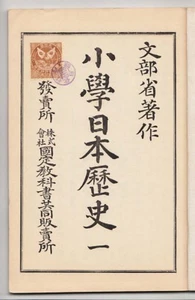 文部省著作
小學日本歷史 一
發賣所 株式會社 國定教科書共同販賣所